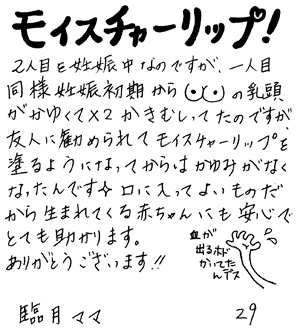 モイスチャーリップ!
2人目を妊娠中なのですが、一人目
同様妊娠初期から の乳頭
がかゆくて×2 かきむしってたのですが
友人に勧められてモイスチャーリップを
塗るようになってからはかゆみがなく
なったんです✧ 口に入ってよいものだ
から生まれてくる赤ちゃんにも安心で
とても助かります。
ありがとうございます!!
血が
出るホド
かいてた
んデス
臨月ママ 29